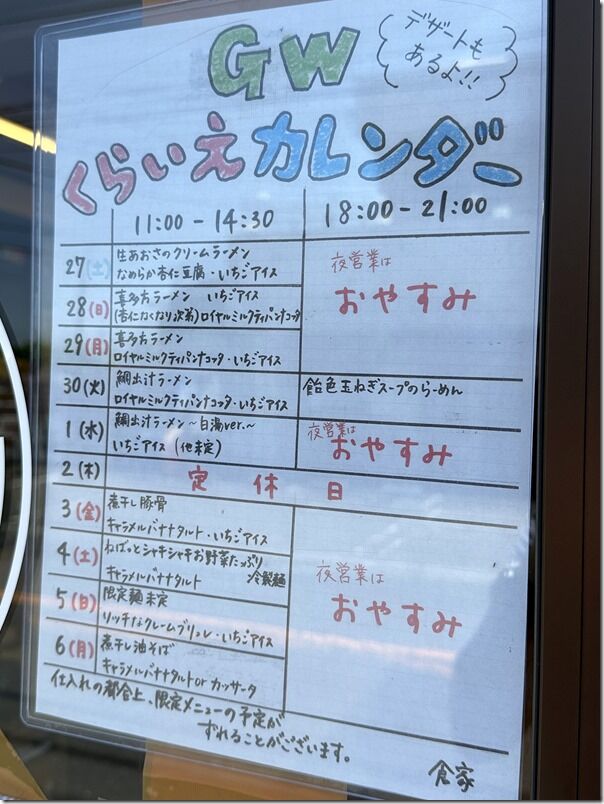 GW
デザートも
あるよ!!
くらいえカレンダー
11:00-14:30 18:00-21:00
27(土) 生あおさのクリームラーメン
なめらか杏仁豆腐・いちごアイス
夜営業は
おやすみ
28(日) 喜多方ラーメン いちごアイス
(杏仁なくなり次第)ロイヤルミルクティパンナコッタ
29(月) 喜多方ラーメン
ロイヤルミルクティパンナコッタ・いちごアイス
30(火) 鯛出汁ラーメン 飴色玉ねぎスープのらーめん
ロイヤルミルクティパンナコッタ・いちごアイス
1(水) 鯛出汁ラーメン〜白湯ver.〜
いちごアイス(他未定)
夜営業は
おやすみ
2(木) 定休日
3(金) 煮干し豚骨
キャラメルバナナタルト・いちごアイス
4(土) ねばっとシャキシャキお野菜たっぷり
冷製麺
キャラメルバナナタルト
夜営業は
おやすみ
5(日) 限定麺未定
リッチなクレームブリュレ・いちごアイス
6(月) 煮干し油そば
キャラメルバナナタルトorカッサータ
仕入れの都合上、限定メニューの予定が
ずれることがございます。
食家